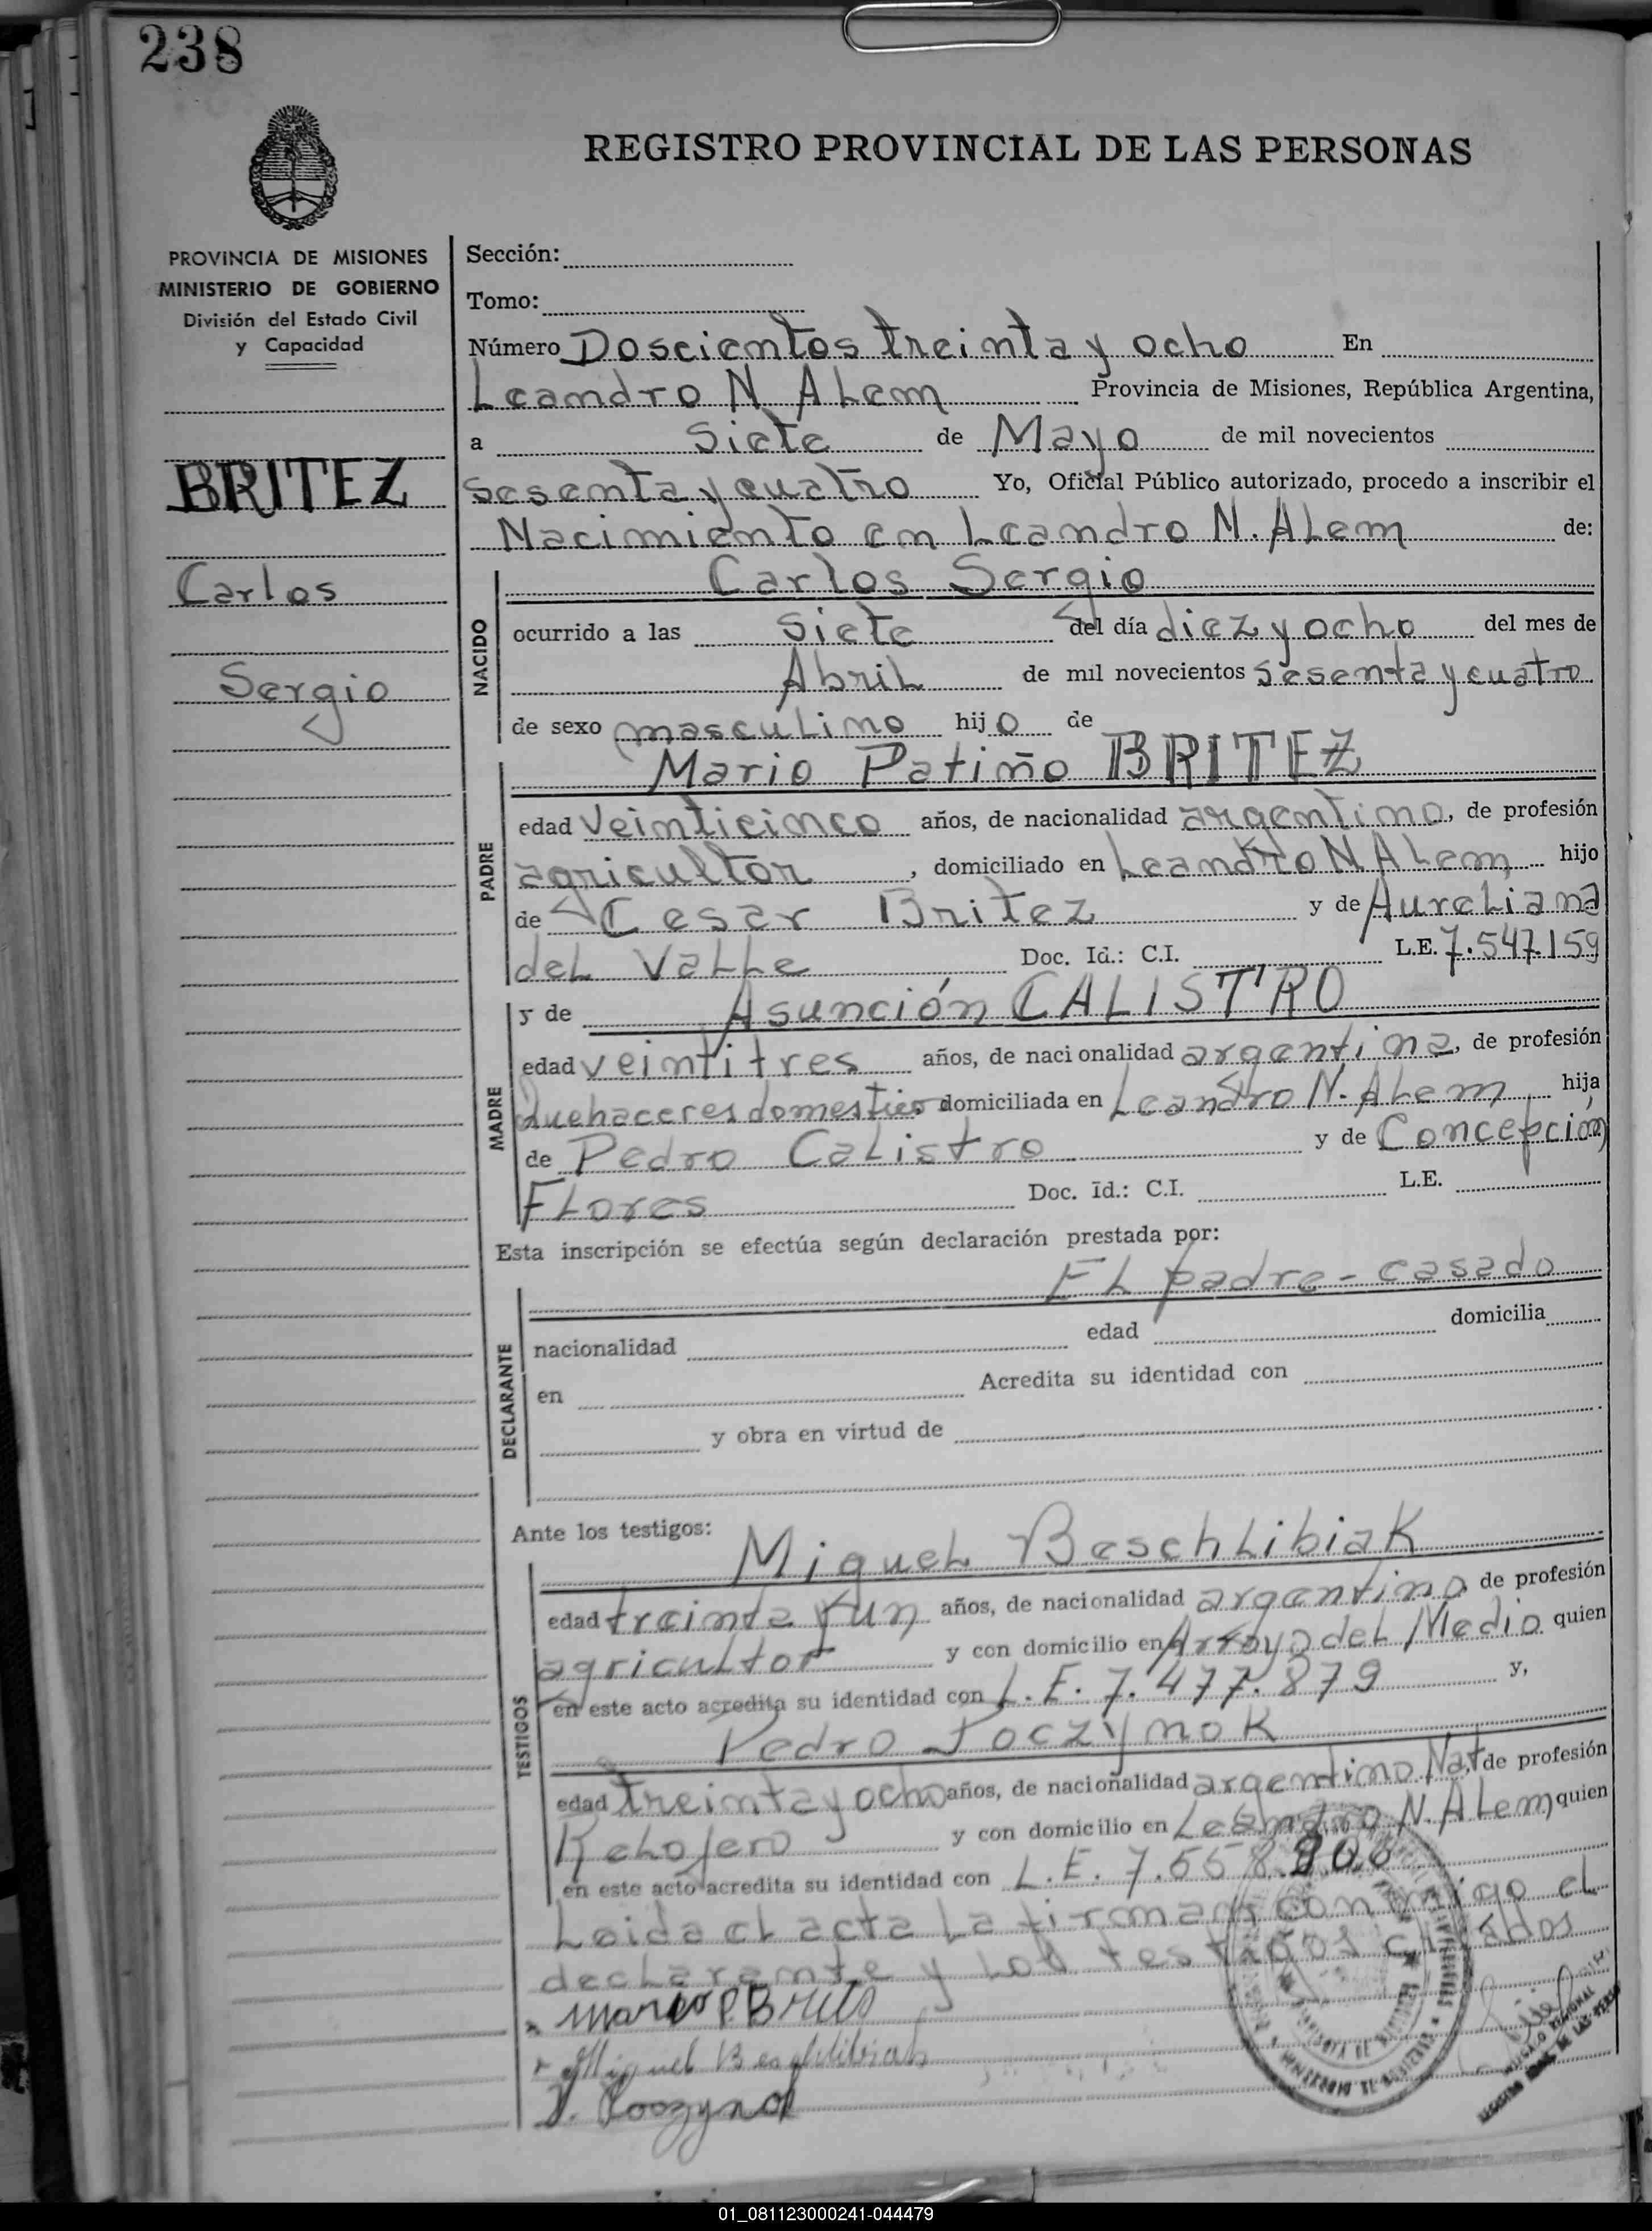 238
REGISTRO PROVINCIAL DE LAS PERSONAS
PROVINCIA DE MISIONES
MINISTERIO DE GOBIERNO
División del Estado Civil
y Capacidad
BRITEZ
Carlos
Sergio
Sección:
Tomo:
Número Doscientos treinta y ocho En
Leandro N ALem Provincia de Misiones, República Argentina,
a Siete de Mayo de mil novecientos
sesenta y cuatro Yo, Oficial Público autorizado, procedo a inscribir el
Nacimiento en Leandro N. ALem de:
NACIDO
Carlos Sergio
ocurrido a las Siete del día diez y ocho del mes de
Abril de mil novecientos sesenta y cuatro
de sexo masculino hijo de
PADRE
Mario Patiño BRITEZ
edad Veinticinco años, de nacionalidad argentino, de profesión
agricultor, domiciliado en Leandro N ALem hijo
de Cesar Britez y de Aureliana
del Valle Doc. Id.: C.I. L.E. 7.547.159
MADRE
y de Asunción CALISTRO
edad veintitres años, de nacionalidad argentina, de profesión
Quehaceres domestico domiciliada en Leandro N. ALem hija
de Pedro Calistro y de Concepción
Flores Doc. Id.: C.I. L.E.
Esta inscripción se efectúa según declaración prestada por:
DECLARANTE
El padre - casado
nacionalidad edad domicilia
en Acredita su identidad con
y obra en virtud de
Ante los testigos:
TESTIGOS
Miguel Beschlibiak
edad treinta y un años, de nacionalidad argentino, de profesión
agricultor y con domicilio en Arroyo del Medio quien
en este acto acredita su identidad con L.E. 7.477.879 y,
Pedro Poczynok
edad treinta y ocho años, de nacionalidad argentino Nat, de profesión
Relojero y con domicilio en Leandro N. ALem quien
en este acto acredita su identidad con L.E. 7.558.
Leida el acta la firman conmigo el
declarante y los testigos citados
Mario P. Brites
Miguel Beschlibiak
P. Poczynok
01_081123000241-044479